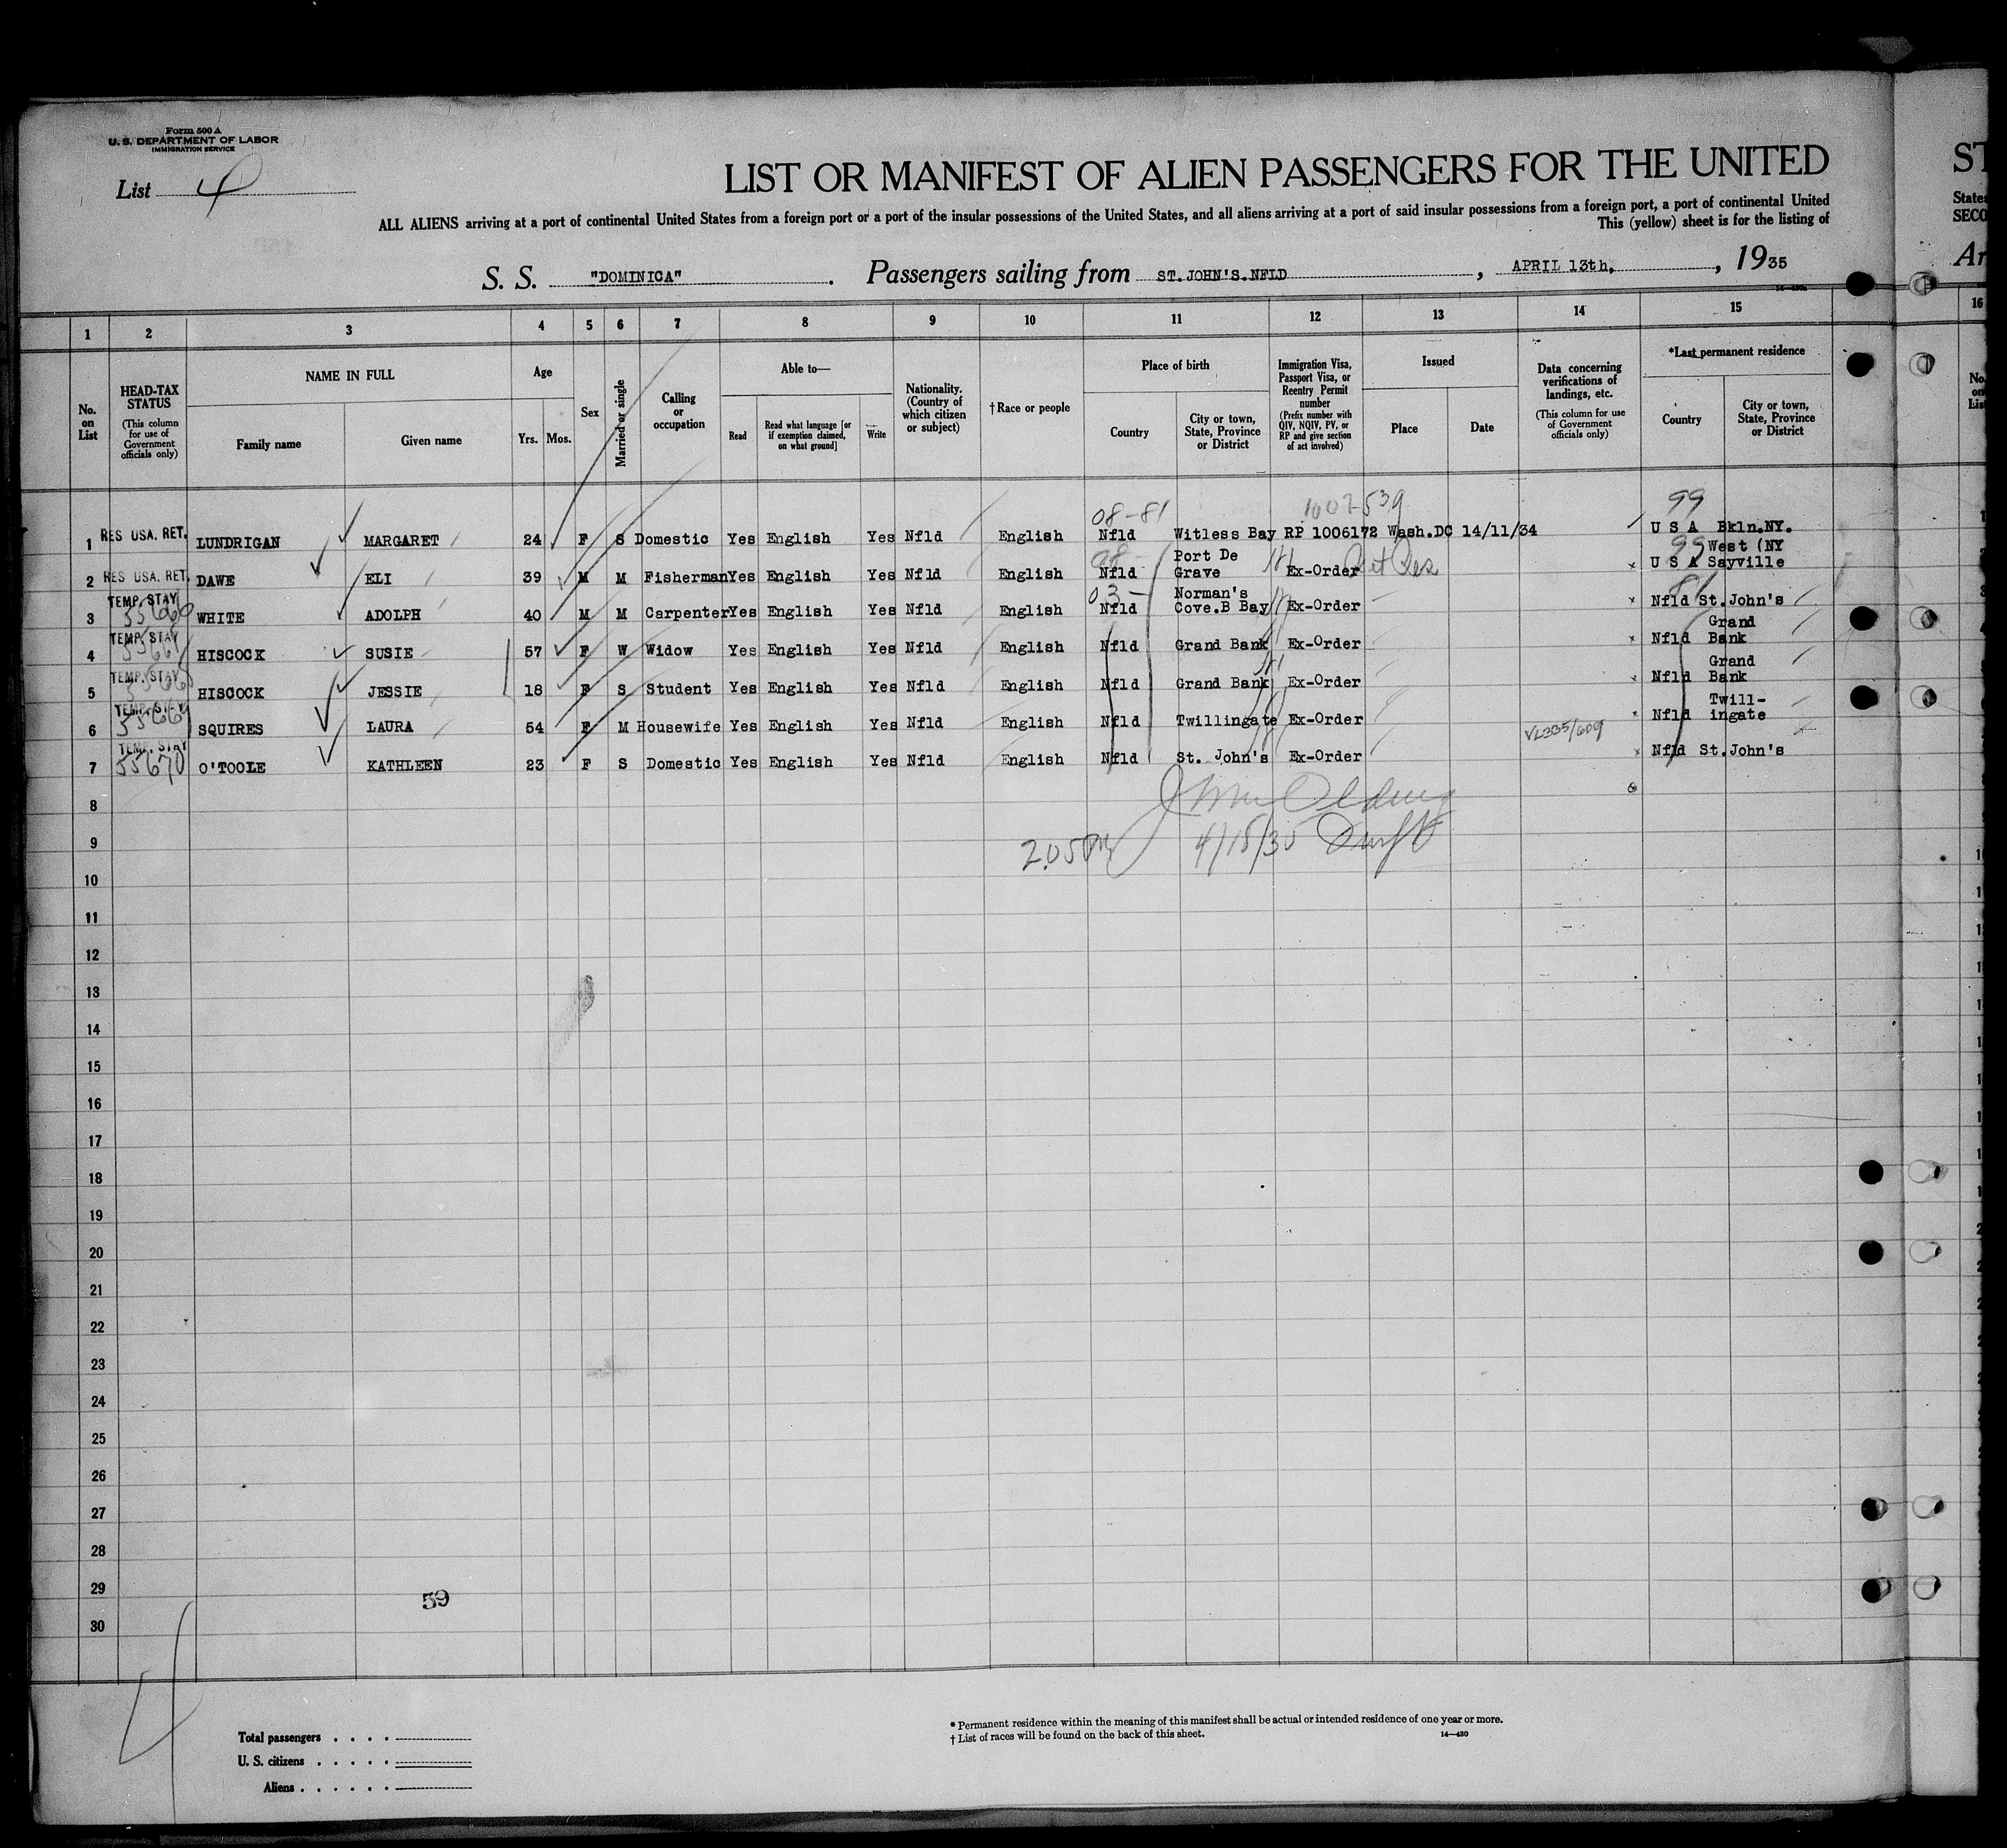 Form 500 A
U. S. DEPARTMENT OF LABOR
IMMIGRATION SERVICE
List 4
LIST OR MANIFEST OF ALIEN PASSENGERS FOR THE UNITED
ST
ALL ALIENS arriving at a port of continental United States from a foreign port or a port of the insular possessions of the United States, and all aliens arriving at a port of said insular possessions from a foreign port, a port of continental United
States
This (yellow) sheet is for the listing of
SECO
S. S. "DOMINICA" . Passengers sailing from ST.JOHN'S.NFLD , APRIL 13th, , 1935
Ar
1 2 3 4 5 6 7 8 9 10 11 12 13 14 15 16
No. on List
HEAD-TAX STATUS (This column for use of Government officials only)
NAME IN FULL
Family name
Given name
Age
Yrs. Mos.
Sex
Married or single
Calling or occupation
Able to—
Read
Read what language [or if exemption claimed, on what ground]
Write
Nationality. (Country of which citizen or subject)
† Race or people
Place of birth
Country
City or town, State, Province or District
Immigration Visa, Passport Visa, or Reentry Permit number (Prefix number with QIV, NQIV, PV, or RP and give section of act involved)
Issued
Place
Date
Data concerning verifications of landings, etc. (This column for use of Government officials only)
*Last permanent residence
Country
City or town, State, Province or District
No. on List
08-81 99
1 RES USA. RET. LUNDRIGAN MARGARET 24 F S Domestic Yes English Yes Nfld English Nfld Witless Bay RP 1006172 Wash.DC 14/11/34 U S A Bkln.NY.
2 RES USA. RET. DAWE ELI 39 M M Fisherman Yes English Yes Nfld English Nfld Port De Grave Ex-Order 99 U S A West (NY Sayville
3 TEMP. STAY WHITE ADOLPH 40 M M Carpenter Yes English Yes Nfld English 03- Nfld Norman's Cove.B Bay Ex-Order 81 Nfld St.John's
4 TEMP. STAY HISCOCK SUSIE 57 F W Widow Yes English Yes Nfld English Nfld Grand Bank Ex-Order Nfld Grand Bank
5 TEMP. STAY HISCOCK JESSIE 18 F S Student Yes English Yes Nfld English Nfld Grand Bank Ex-Order Nfld Grand Bank
6 TEMP. STAY 55669 SQUIRES LAURA 54 F M Housewife Yes English Yes Nfld English Nfld Twillingate Ex-Order Nfld Twill-ingate
7 TEMP. STAY 55670 O'TOOLE KATHLEEN 23 F S Domestic Yes English Yes Nfld English Nfld St. John's Ex-Order Nfld St.John's
8
9 4/18/35
10
11
12
13
14
15
16
17
18
19
20
21
22
23
24
25
26
27
28
29 59
30
Total passengers
U. S. citizens
Aliens
* Permanent residence within the meaning of this manifest shall be actual or intended residence of one year or more.
† List of races will be found on the back of this sheet.
14—430